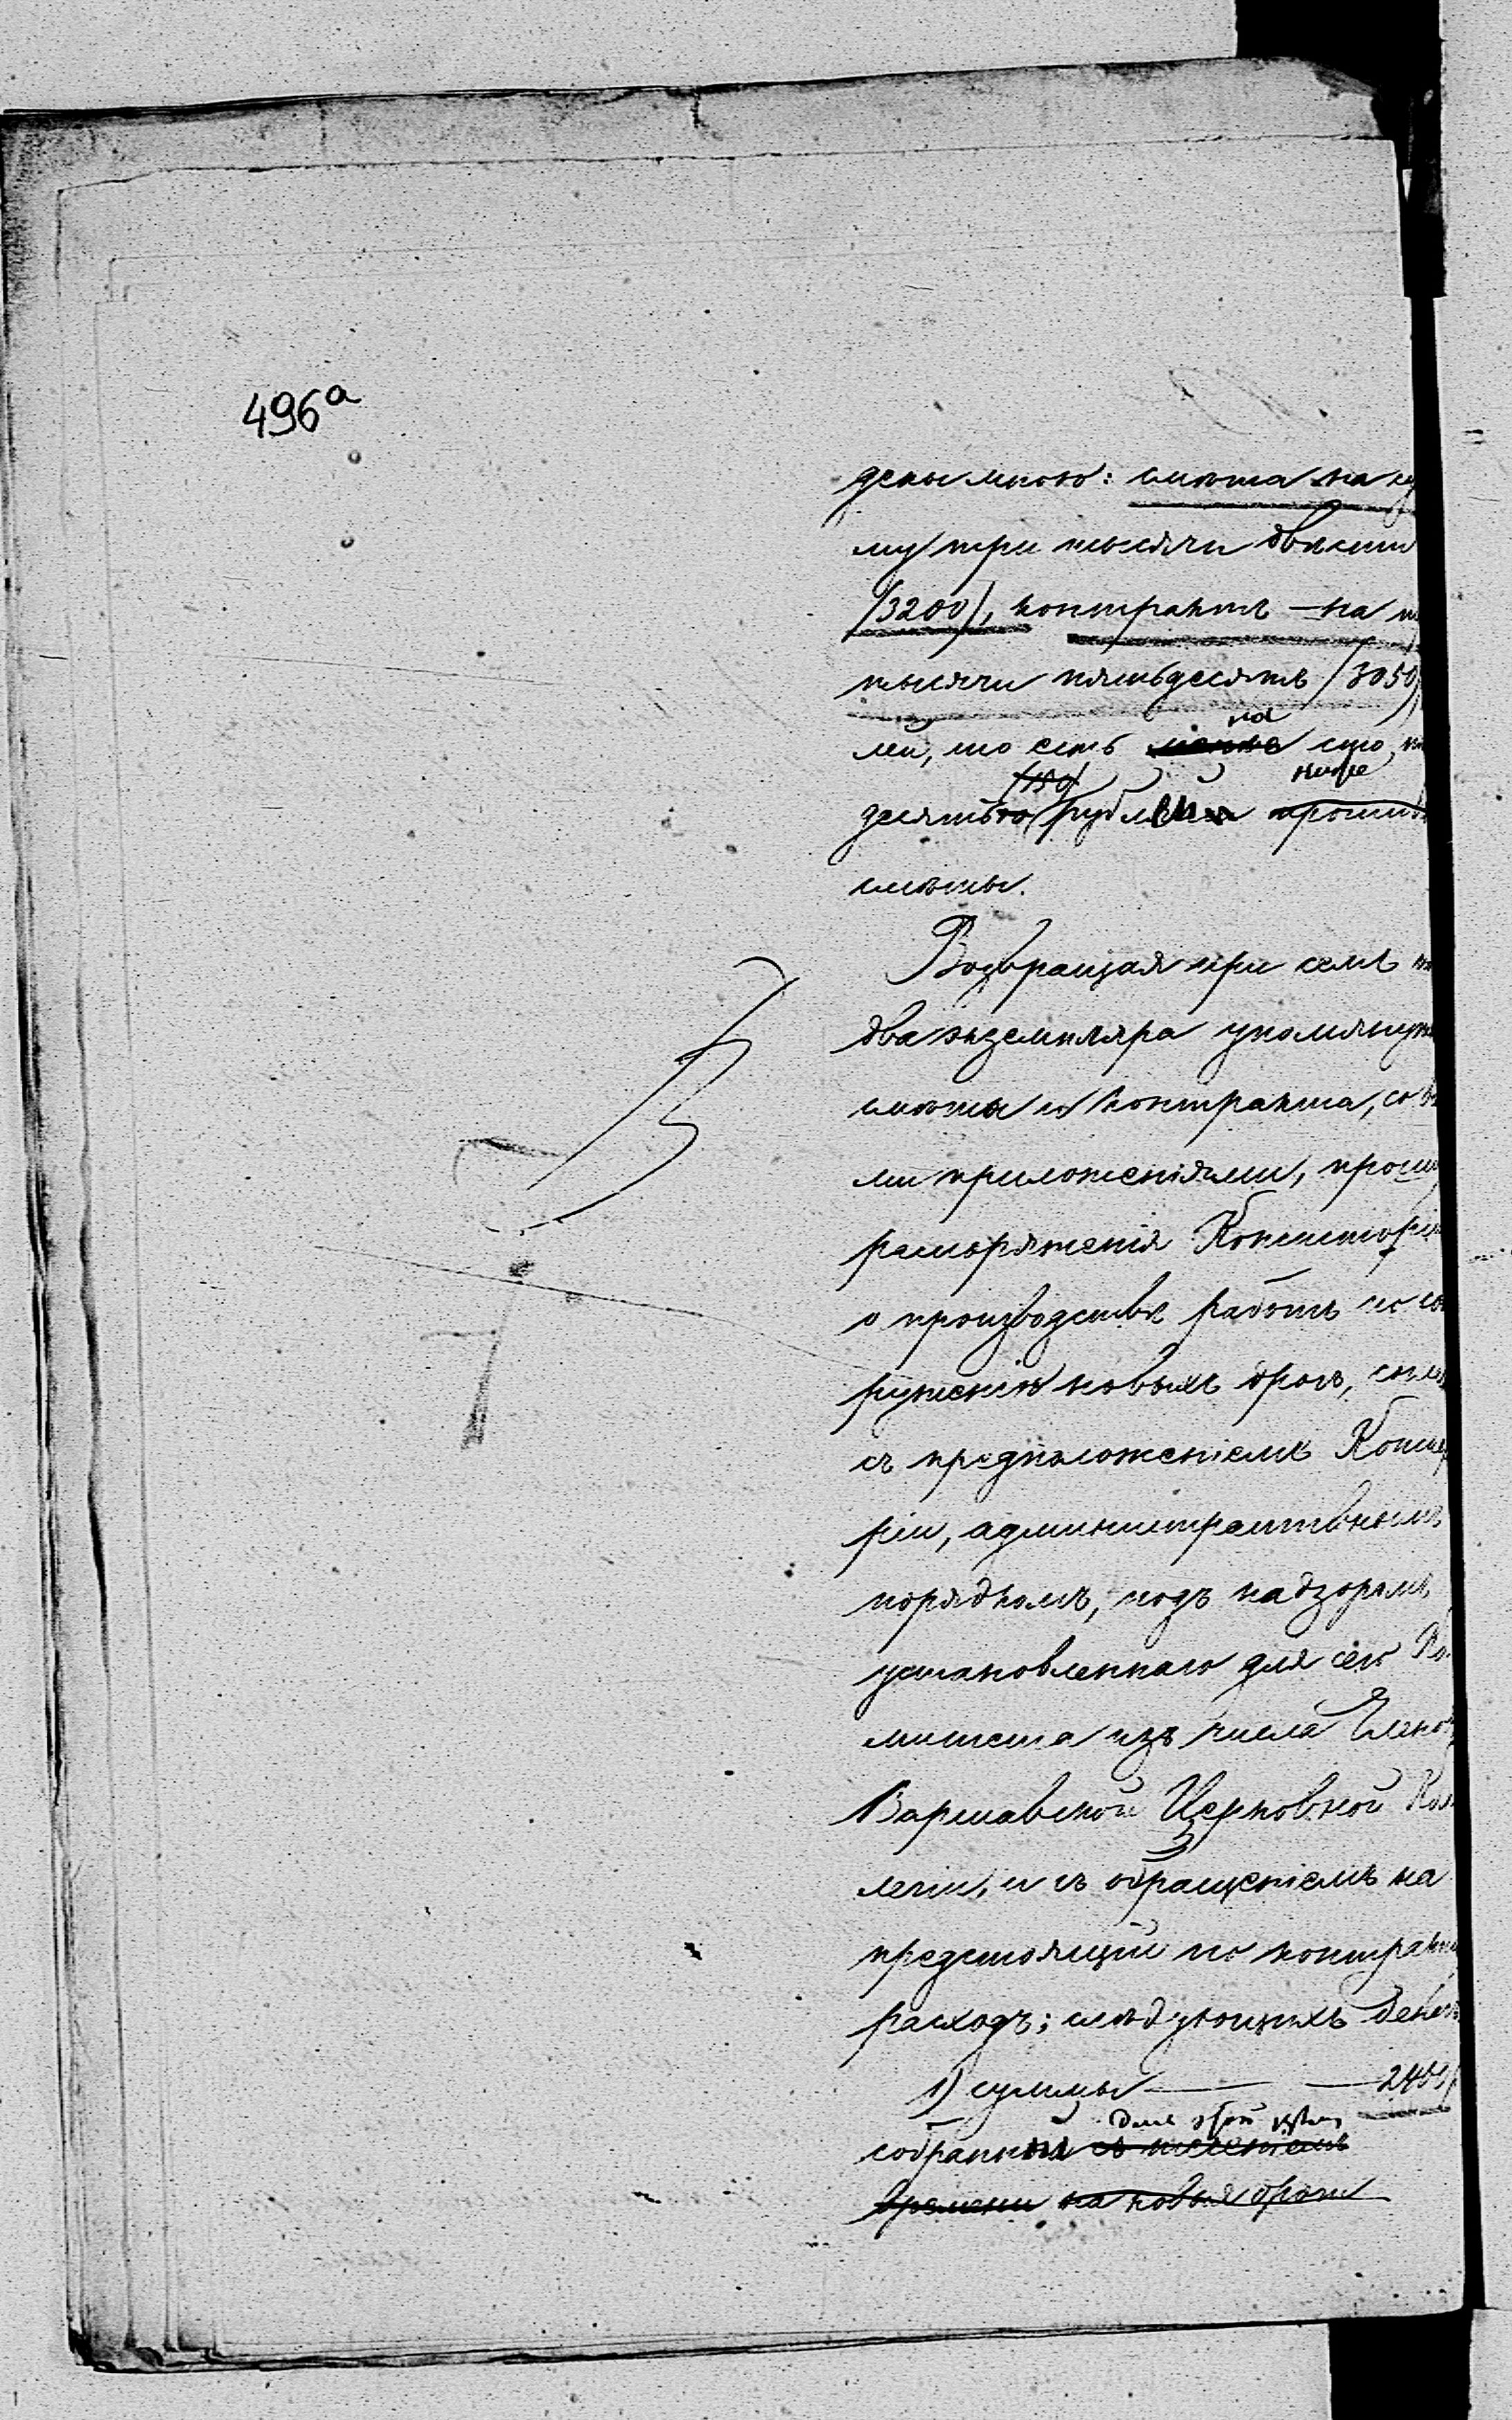 496а
дены мною: смѣта на су
му три тысячи двѣсти
(3200), контрактъ — на т
тысячи пятьдесятъ (3050)
лей, то есть на сто, п
(150) ниже
десятью рублей против
смѣты.
Возвращая при семъ по
два экземпляра упомянут
смѣты и контракта, со в
ми приложеніями, прошу
распоряженія Консисторіи
о производствѣ работъ по со
руженію новыхъ дрогъ, согл
съ предположеніемъ Консисто
ріи, административнымъ
порядкомъ, подъ надзоромъ
установленнаго для сего Ко
митета изъ числа Членовъ
Варшавской Церковной Кол
легіи, и съ обращеніемъ на
предстоящій по контракту
расходъ; слѣдующихъ денегъ
1) суммы — — 2455
для этой цѣли
собранной съ теченіемъ
времени на новыя дроги